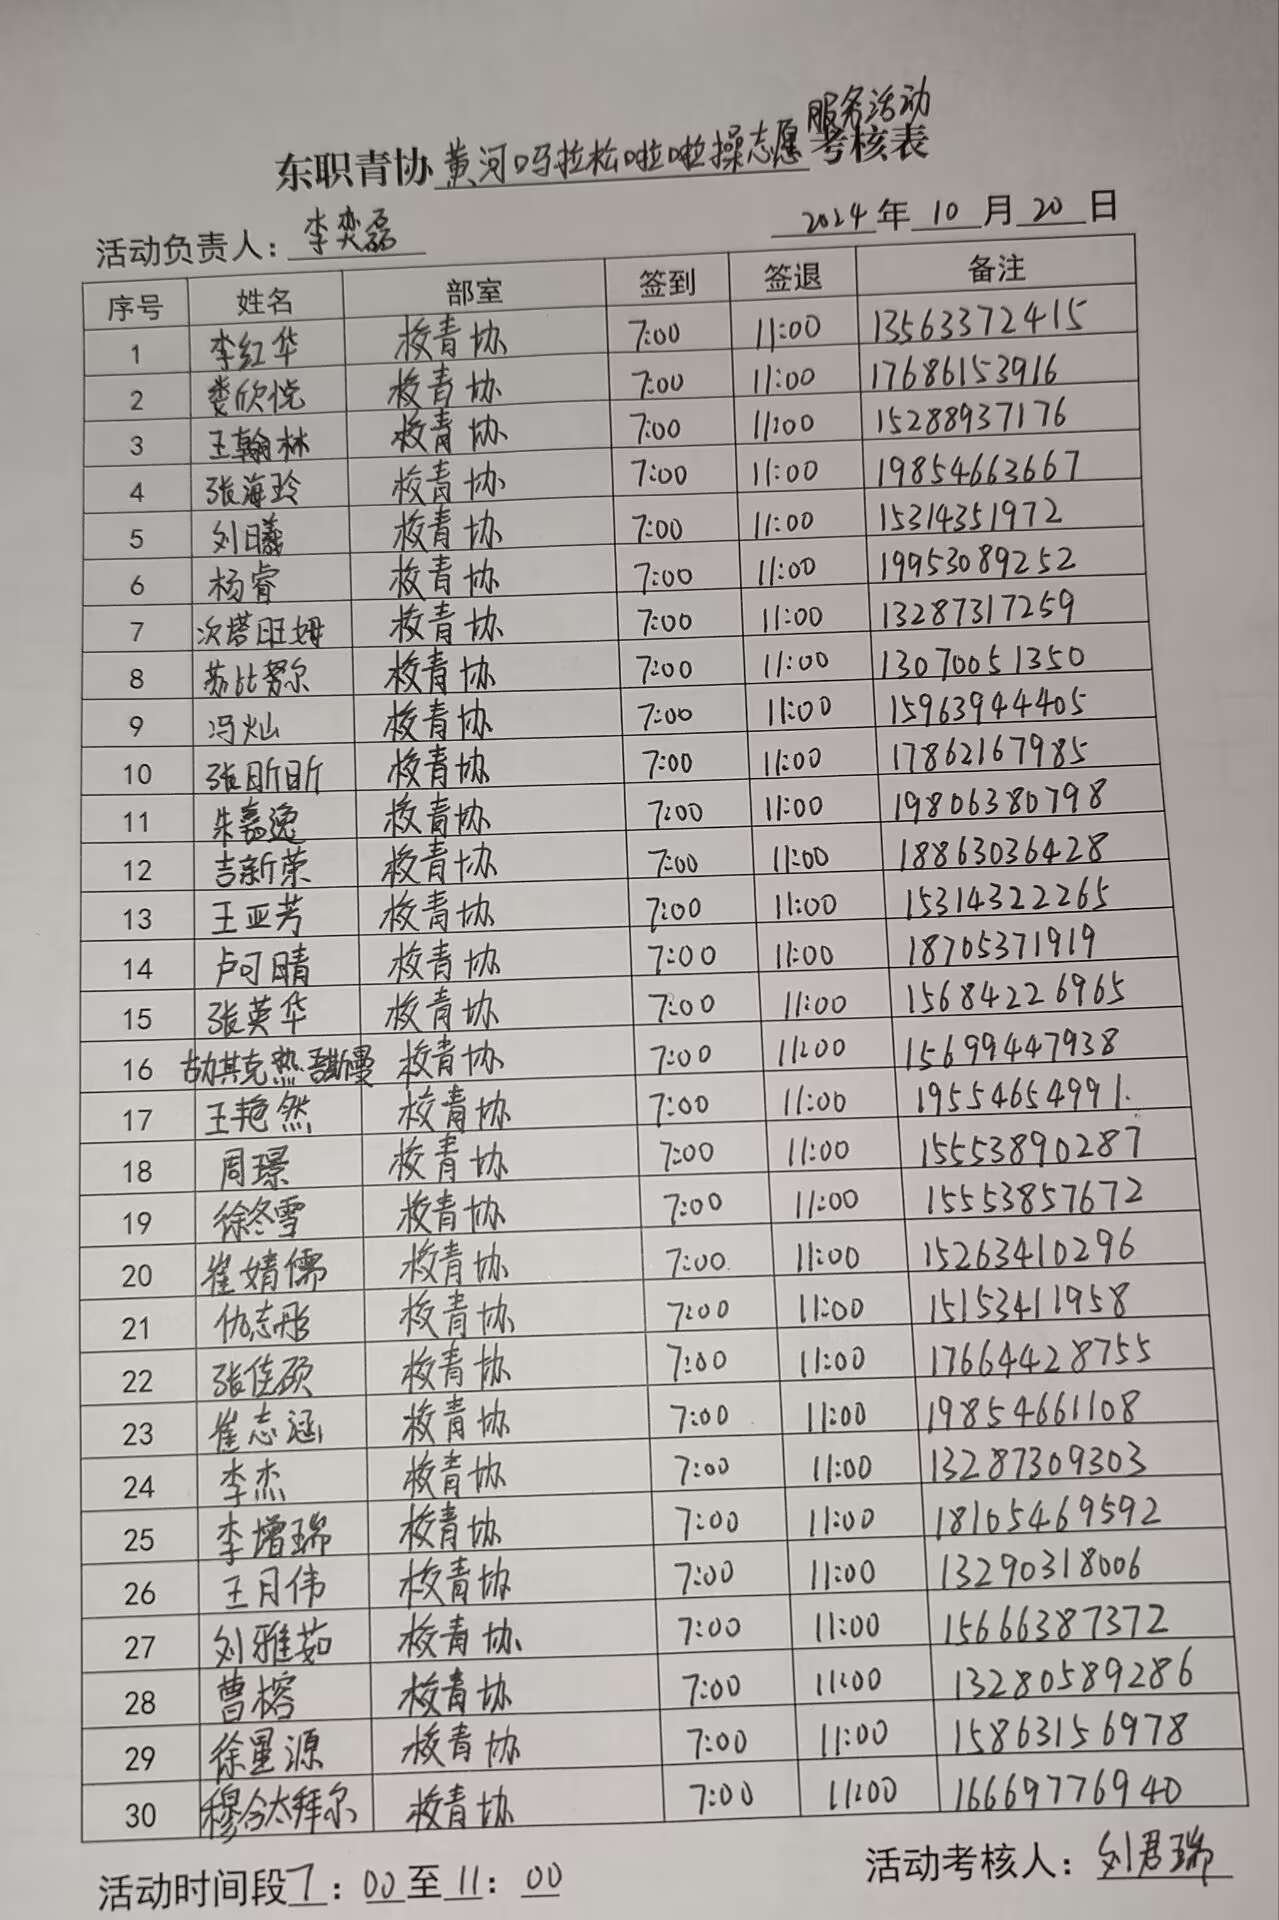 服务活动
东职青协黄河吗拉松啦啦操志愿考核表
活动负责人：李奕磊 2024年10月20日
序号 姓名 部室 签到 签退 备注
1 李红华 校青协 7:00 11:00 13563372415
2 娄欣悦 校青协 7:00 11:00 17686153916
3 王翰林 校青协 7:00 11:00 15288937176
4 张海玲 校青协 7:00 11:00 19854663667
5 刘曦 校青协 7:00 11:00 15314351972
6 杨睿 校青协 7:00 11:00 19953089252
7 次塔旺姆 校青协 7:00 11:00 13287317259
8 苏比努尔 校青协 7:00 11:00 13070051350
9 冯灿 校青协 7:00 11:00 15963944405
10 张昕昕 校青协 7:00 11:00 17862167985
11 朱嘉逸 校青协 7:00 11:00 19806380798
12 吉新荣 校青协 7:00 11:00 18863036428
13 王亚芳 校青协 7:00 11:00 15314322265
14 卢可晴 校青协 7:00 11:00 18705371919
15 张英华 校青协 7:00 11:00 15684226965
16 古力其克热·吾斯曼 校青协 7:00 11:00 15699447938
17 王艳然 校青协 7:00 11:00 19554654991.
18 周璟 校青协 7:00 11:00 15553890287
19 徐冬雪 校青协 7:00 11:00 15553857672
20 崔婧儒 校青协 7:00 11:00 15263410296
21 仇志彤 校青协 7:00 11:00 15153411958
22 张佳硕 校青协 7:00 11:00 17664428755
23 崔志涵 校青协 7:00 11:00 19854661108
24 李杰 校青协 7:00 11:00 13287309303
25 李增瑞 校青协 7:00 11:00 18105469592
26 王月伟 校青协 7:00 11:00 13290318006
27 刘雅茹 校青协 7:00 11:00 15666387372
28 曹榕 校青协 7:00 11:00 13280589286
29 徐星源 校青协 7:00 11:00 15863156978
30 穆合太拜尔 校青协 7:00 11:00 16669776940
活动时间段7：00至11：00 活动考核人：刘君瑞